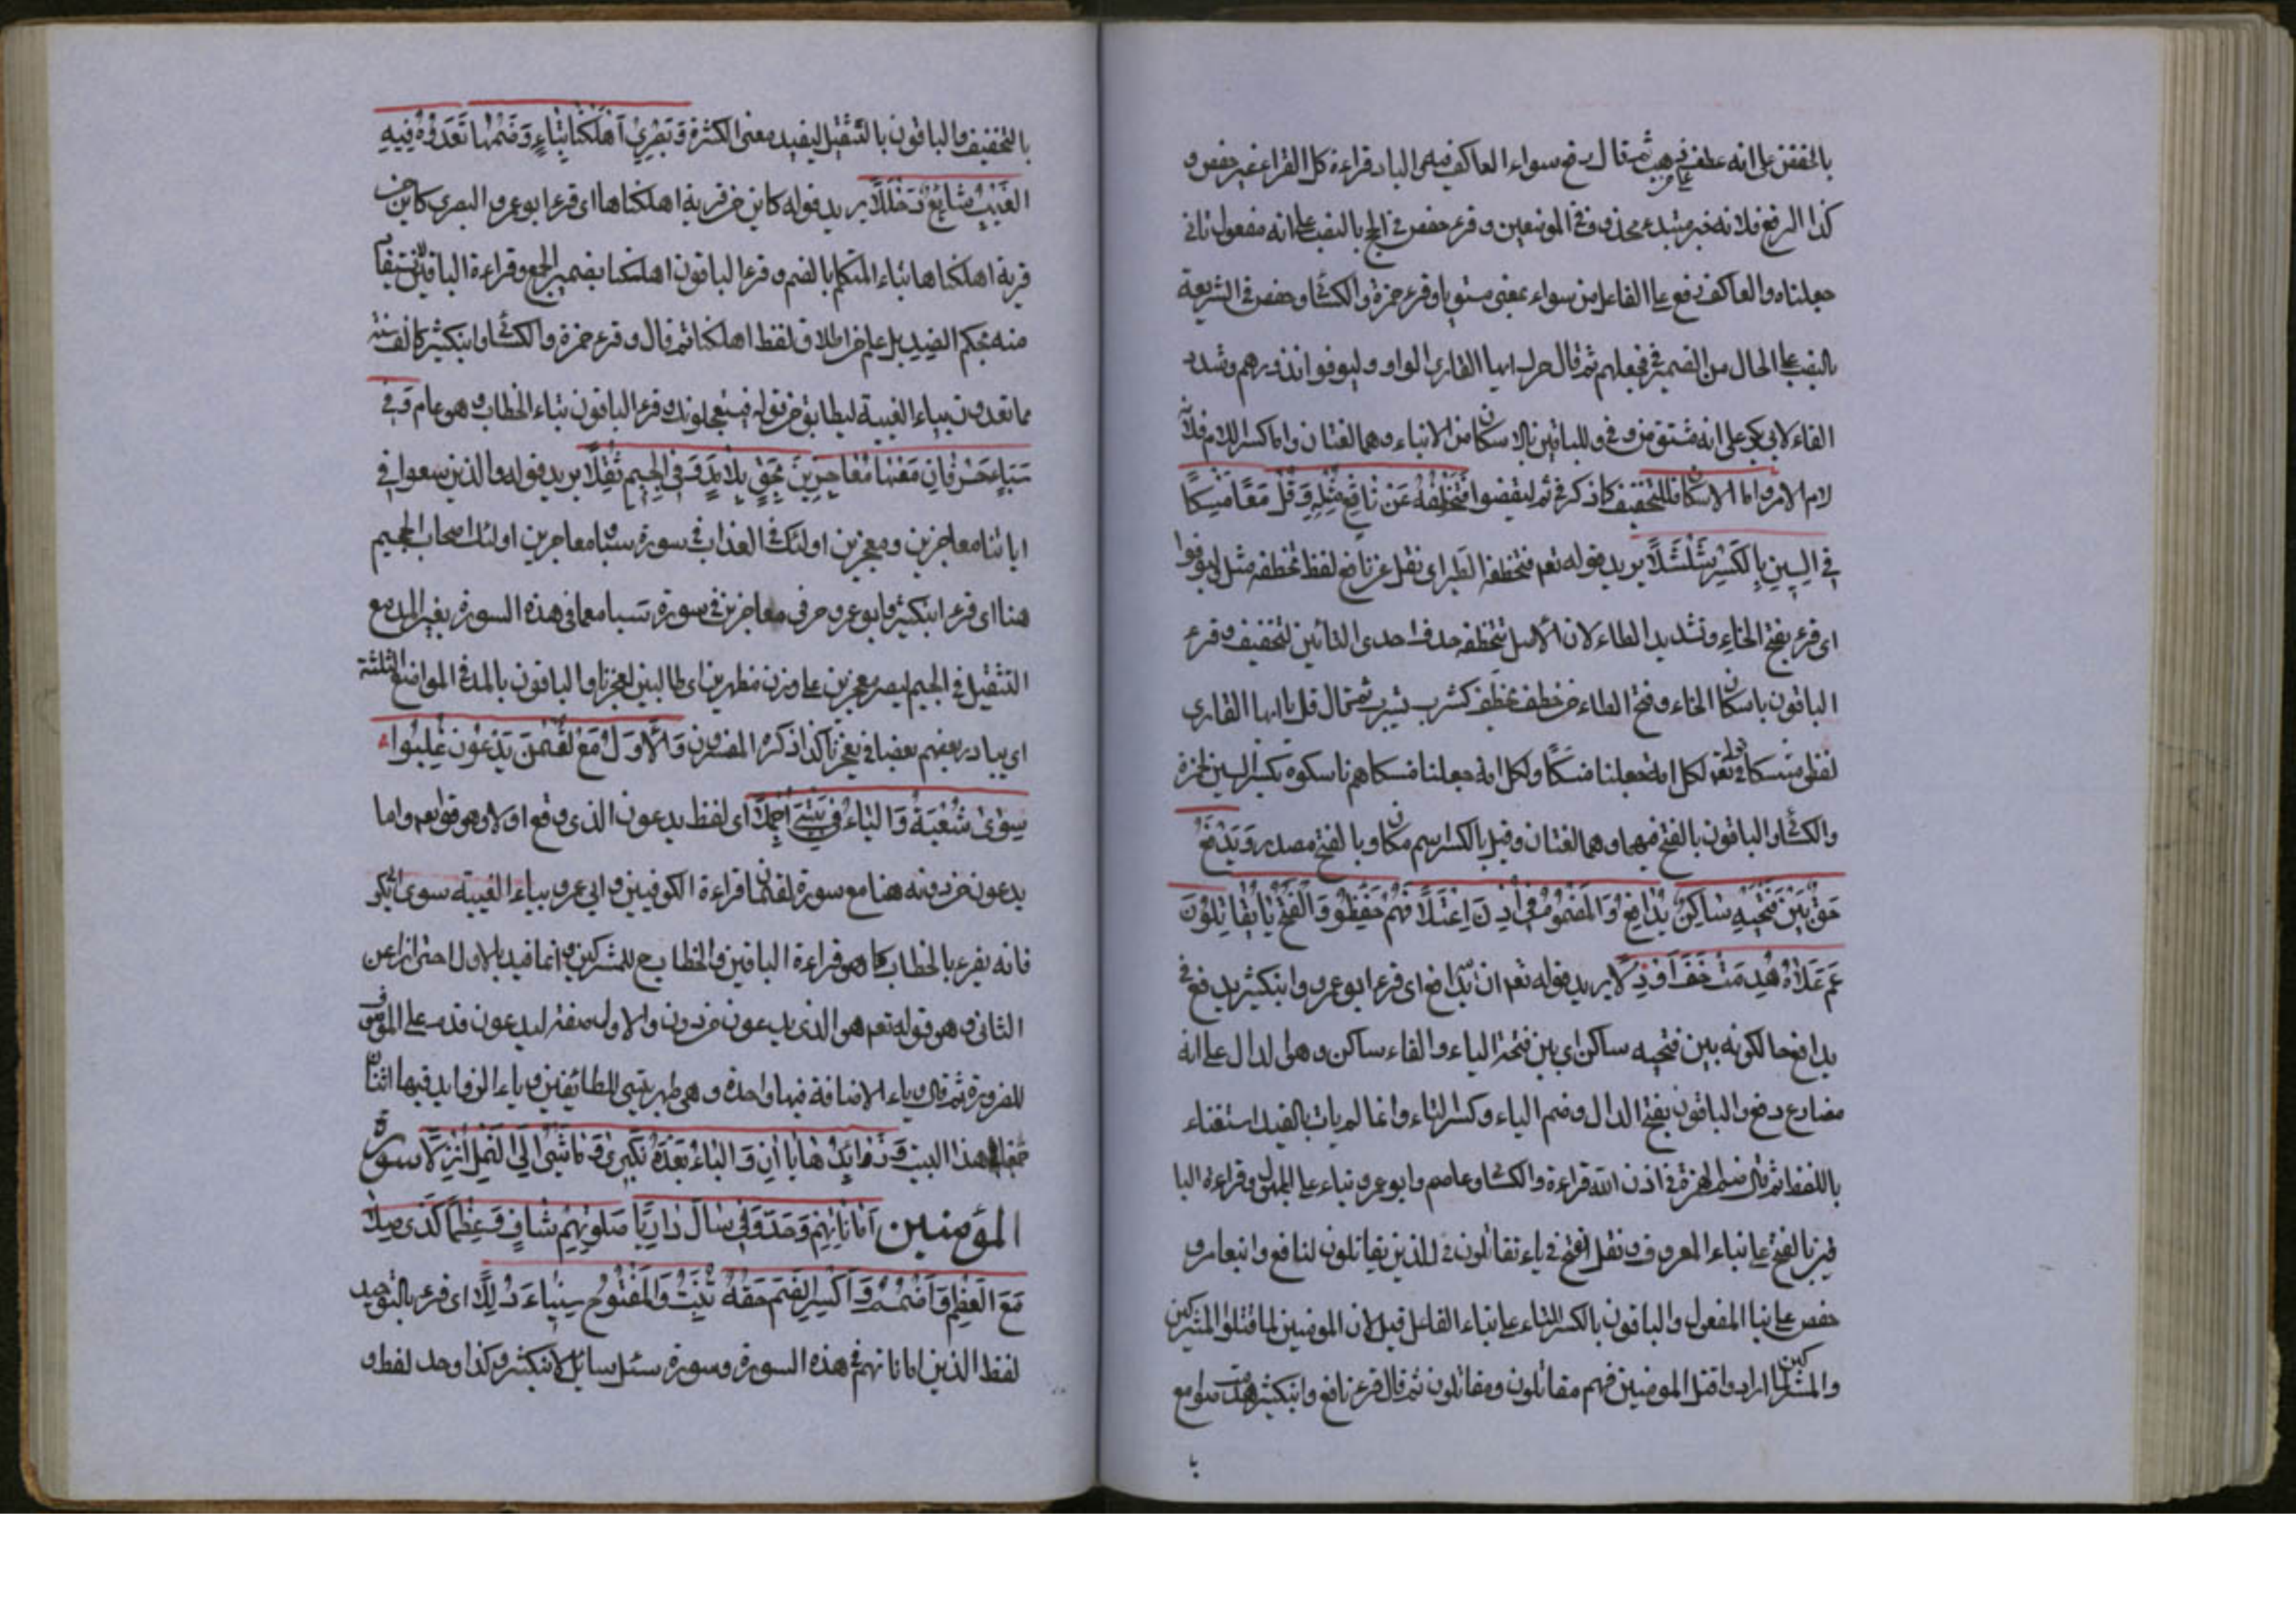 بالخفض على انه عطف ثم قال رفع سواء العاكف فيه والباد قراءة كل القراء غير حفص و
كذا الرفع فلانه خبر مبتدء محذوف في الموضعين و قرء حفص في الحج بالنصب على انه مفعول ثاني
جعلناه والعاكف رفع على الفاعل من سواء بمعنى مستويا و قرء حمزة والكسائي و حفص في الشريعة
بالنصب على الحال من الضمير في نجعلهم ثم قال حرك ايها القارئ الواو وليوفوا نذورهم وشدد
الفاء لابي بكر على انه مشتق من وفي وللباقين بالاسكان من الايفاء وهما لغتان واما كسر اللام فلانه
لام الامر واما الاسكان فللتخفيف كما ذكر في ثم ليقضوا فَتَخْطَفُهُ عَنْ نَافِعٍ مِثْلُهُ وَقُلْ مَعًا مَنْسِكًا
فِي السِّينِ بِالْكَسْرِ شُلْشُلًا يريد قوله تعم فتخطفه الطير اى نقل عن نافع لفظ تخطفه مثل ليوفوا
اى قرء بفتح الخاء وتشديد الطاء لان الاصل تتخطفه حذف احدى التائين لتخفيف و قرء
الباقون باسكان الخاء وفتح الطاء من خطف يخطف كشرب يشرب ثم قال قل يا ايها القارى
لفظ منسكا في قوله تعم لكل امة جعلنا منسكا ولكل امة جعلنا منسكا هم ناسكوه بكسر السين لحمزة
والكسائي والباقون بالفتح فيهما وهما لغتان وقيل بالكسر اسم مكان وبالفتح مصدر وَيَدْفَعُ
حَقٌّ بَيْنَ فَتْحَيْهِ سَاكِنٌ يُدَافِعُ وَالْمَضْمُومُ فِي أَذِنَ اعْتَلَا نَعَمْ حَفِظُوا وَالْفَتْحُ تَا يُقَاتِلُونَ
عَمَّ عُلَاهُ هُدِّمَتْ خَفَّ إِذْ دَلَا يريد قوله تعم ان الله يدافع اى قرء ابو عمرو وابن كثير يدفع في
يدافع حالكونه بين فتحيه ساكن اى بين فتحة الياء والفاء ساكن وهى لدال على انه
مضارع دفع والباقون بفتح الدال وضم الياء وكسر التاء وانما لم يات بالقيد استغناء
باللفظ ثم قال ضم الهمزة في اذن الله قراءة والكسائي وعاصم وابو عمرو بناء على المجهول وقراءة البا
قين بالفتح على بناء المعروف ونقل الفتح في ياء تقاتلون في للذين يقاتلون لنافع وابن عامر و
حفص على بناء المفعول والباقون بالكسر التاء على بناء الفاعل قيل لان المومنين لما قتلوا المشركين
والمشركين لما ارادوا قتل المومنين فهم مقاتلون ومقاتلون ثم قال قرء نافع وابن كثير هدمت صلومع
با
بالتخفيف والباقون بالتثقيل ليفيد معنى الكثرة وَبَصْرِيٌّ أَهْلَكْنَا بِتَاءٍ وَضَمِّهَا تَعُدُّونَ فِيهِ
الْغَيْبُ شَايَعَ دُخْلُلَا يريد قوله كاين من قرية اهلكناها اى قرء ابو عمرو البصرى كاين من
قرية اهلكناها بتاء المتكلم بالضم و قرء الباقون اهلكنا بضمير الجمع وقراءة الباقين
منه بحكم الضد بل علم من اطلاق لفظ اهلكنا ثم قال و قرء حمزة والكسائي وابن كثير كالف سنة
مما تعدون بياء الغيبة ليطابق من قوله فيستعجلونك و قرء الباقون بتاء الخطاب وهو عام وَفِي
سَبَأٍ حَرْفَانِ مَعْهَا مُعَاجِزِينَ حَقٌّ بِلَا مَدٍّ وَفِي الْجِيمِ ثَقِّلَا يريد قوله والذين سعوا في
اياتنا معاجزين ومعجزين اولئك في العذاب في سورة سبا معاجزين اولئك اصحاب الجحيم
هنا اى قرء ابن كثير وابو عمرو حرفى معاجزين في سورة سبا معا في هذه السورة بغير المد مع
التثقيل في الجيم ليصير معجزين على وزن مظهرين اى طالبين لعجزنا والباقون بالمد في المواضع الثلثة
اى يبادر بعضهم بعضا في عجزنا كذا ذكره المفسرون وَالْأَوَّلُ مَعْ لُقْمَانَ يَدْعُونَ غَلَّبُوا
سِوَى شُعْبَةٍ وَالْيَاءُ فِي بَيْتِيَ اجْمَلَا اى لفظ يدعون الذى وقع اولا وهو قوله تعم واما
يدعون من دونه هنا مع سورة لقمان قراءة الكوفيين و ابى عمرو بياء الغيبة سوى ابى بكر
فانه يقرء بالخطاب كما هو قراءة الباقين والخطاب ح للمشركين و انما قيد بالاول احترازا عن
الثانى و هو قوله تعم هو الذى يدعون من دون والاول مفتر ليدعون قدم على الموصوف
للضرورة ثم قال وياء الاضافة فيها واحدة و هى طهر بيتى للطائفين و ياء الزوايد فيها اثنان
هذا البيت وَزَوَائِدُهَا يَا اَنِ وَالْبَاءُ بَعْدَهُ نَكِيرِى وَمَا شَيْءٌ إِلَى النَّمْلِ أُنْزِلَا سورة
المؤمنين أَمَانَاتِهِمْ وَحِّدْ وَفِي سَالَ دَارِيًا صَلَوتِهِمْ شَافٍ وَعَظْمًا كَذِي صِلَا
مَعَ الْعَظْمِ وَاضْمُمْ وَاكْسِرِ الضَّمَّ حَقُّهُ تَنْبُتُ وَالْمَفْتُوحُ سِينَاءَ ذُلِّلَا اى قرء بالتوحيد
لفظ الذين اماناتهم في هذه السورة وسورة سئل سايل لابن كثير وكذا وحد لفظ و